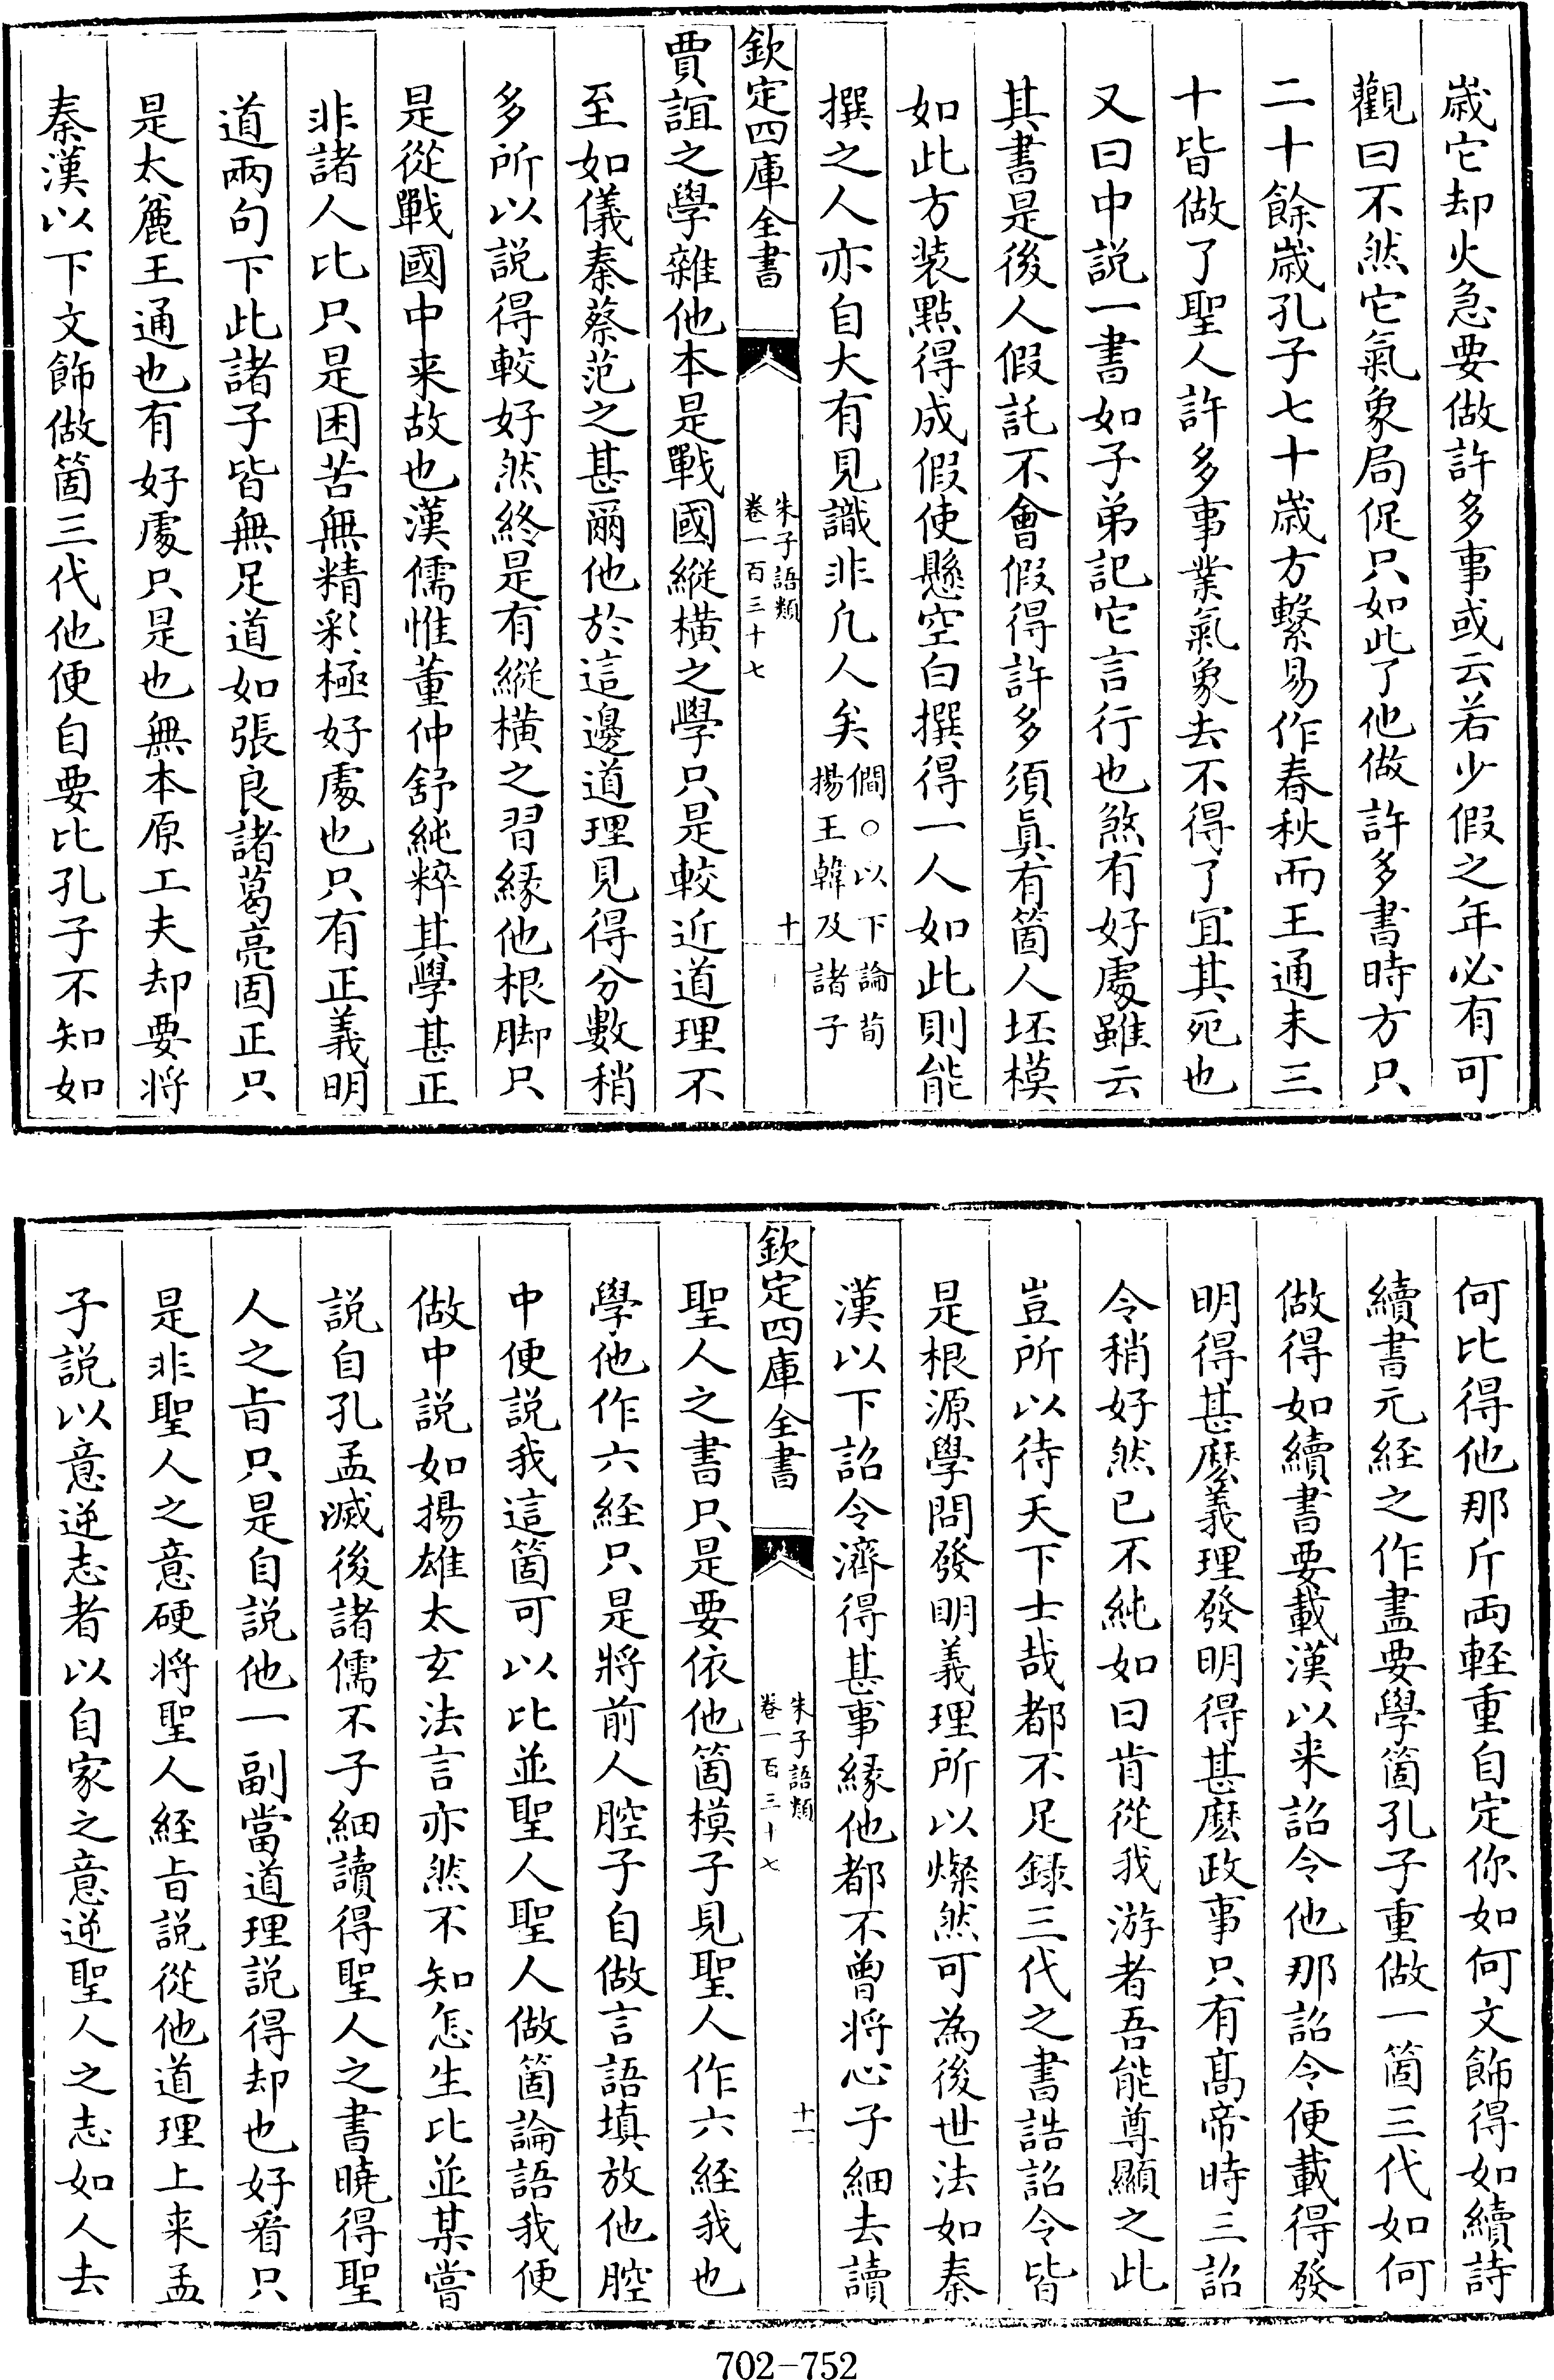 歳它却火急要做許多事或云若少假之年必有可
觀曰不然它氣象局促只如此了他做許多書時方只
二十餘歳孔子七十歳方繫易作春秋而王通未三
十皆做了聖人許多事業氣象去不得了宜其死也
又曰中説一書如子弟記它言行也煞有好處雖云
其書是後人假託不會假得許多須真有箇人坯模
如此方装點得成假使懸空白撰得一人如此則能
撰之人亦自大有見識非凡人矣
僩○以下論荀
揚王韓及諸子
欽定四庫全書
朱子語類
卷一百三十七
十
賈誼之學雜他本是戰國縱橫之學只是較近道理不
至如儀秦蔡范之甚爾他於這邊道理見得分數稍
多所以説得較好然終是有縱横之習縁他根脚只
是從戰國中来故也漢儒惟董仲舒純粹其學甚正
非諸人比只是困苦無精彩極好處也只有正義明
道兩句下此諸子皆無足道如張良諸葛亮固正只
是太麄王通也有好處只是也無本原工夫却要将
秦漢以下文飾做箇三代他便自要比孔子不知如
何比得他那斤兩輕重自定你如何文飾得如續詩
續書元經之作盡要學箇孔子重做一箇三代如何
做得如續書要載漢以来詔令他那詔令便載得發
明得甚麽義理發明得甚麽政事只有髙帝時三詔
令稍好然已不純如曰肯從我游者吾能尊顯之此
豈所以待天下士哉都不足録三代之書誥詔令皆
是根源學問發明義理所以燦然可為後世法如秦
漢以下詔令濟得甚事縁他都不曽将心子細去讀
欽定四庫全書
朱子語類
卷一百三十七
十一
聖人之書只是要依他箇模子見聖人作六經我也
學他作六經只是將前人腔子自做言語填放他腔
中便説我這箇可以比並聖人聖人做箇論語我便
做中説如揚雄太玄法言亦然不知怎生比並某嘗
説自孔孟滅後諸儒不子細讀得聖人之書曉得聖
人之㫖只是自説他一副當道理説得却也好看只
是非聖人之意硬将聖人經㫖説從他道理上来孟
子説以意逆志者以自家之意逆聖人之志如人去
702-752